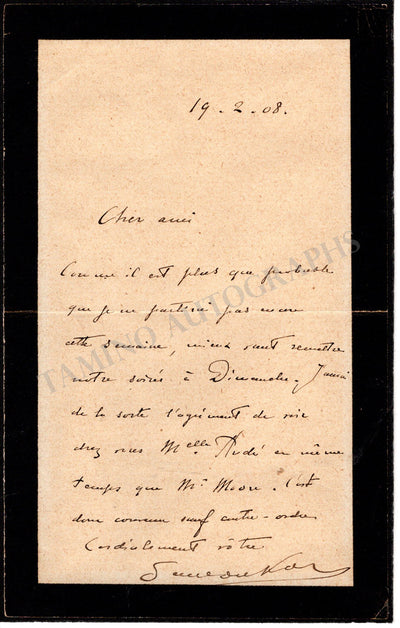 19 - 2 - 08.
Cher ami
Comme il est plus que probable
que je ne partirai pas encore
cette semaine, mieux vaut remettre
notre soirée à Dimanche. J'aurai
de la sorte l'agrément de voir
chez vous Melle en même
temps que Mr Moore. C'est
donc convenu sauf contre-ordre
Cordialement vôtre
TAMINO AUTOGRAPHS